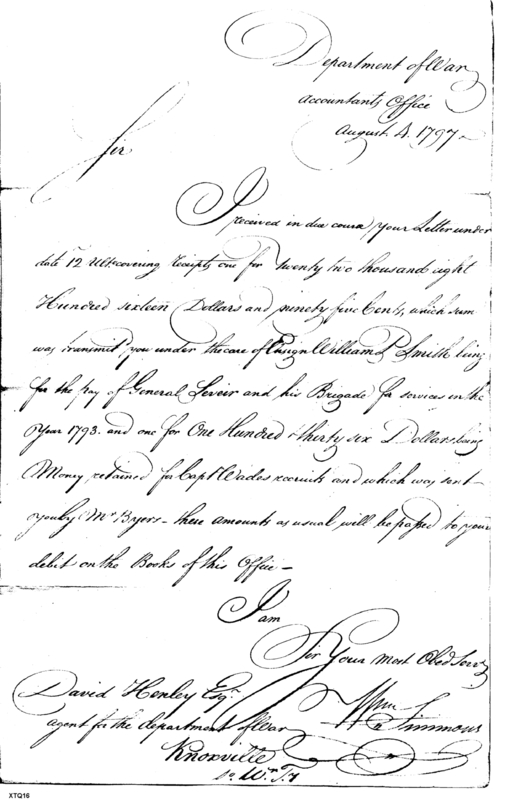 Department of War
Accountants Office
August 4. 1797
Sir
I received in due course your Letter under
date 12 Ult. covering receipts one for twenty two thousand eight
Hundred sixteen Dollars and ninety five Cents, which sum
was transmit'd you under the care of Ensign William P Smith being
for the pay of General Sevier and his Brigade for services in the
Year 1793. and one for One Hundred & thirty six Dollars being
Money retained for Capt Wades recruits and which was sent
you by Mr Byers - these amounts as usual will be passed to your
debit on the Books of this Office -
I am
Sir Your most Obed Serv
David Henley Esqr
Wm Simmons
Agent for the department of War
Knoxville
XTQ16